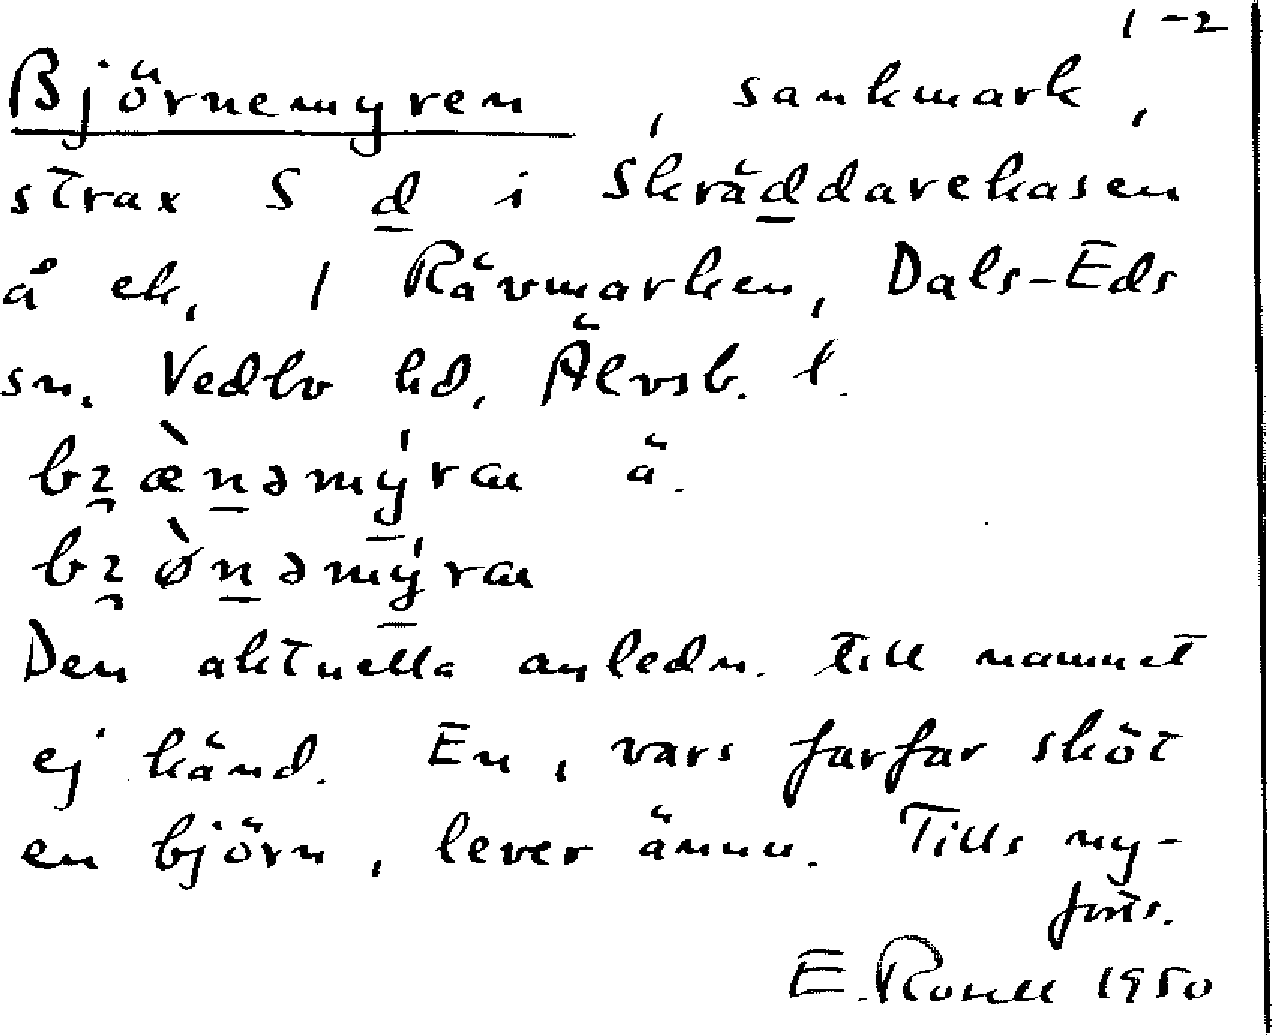 1-2
Björnemyren, sankmark,
strax S d i Skräddarekasen
å ek. 1 Rävmarken, Dals-Eds
sn. Vedbo hd, Älvsb. l.
bɀæ̀nəmýran ä.
bɀø̀nəmýran
Den aktuella anledn. till namnet
ej känd. En, vars farfar sköt
en björn, lever ännu. Tills ny-
E. Rosell 1950